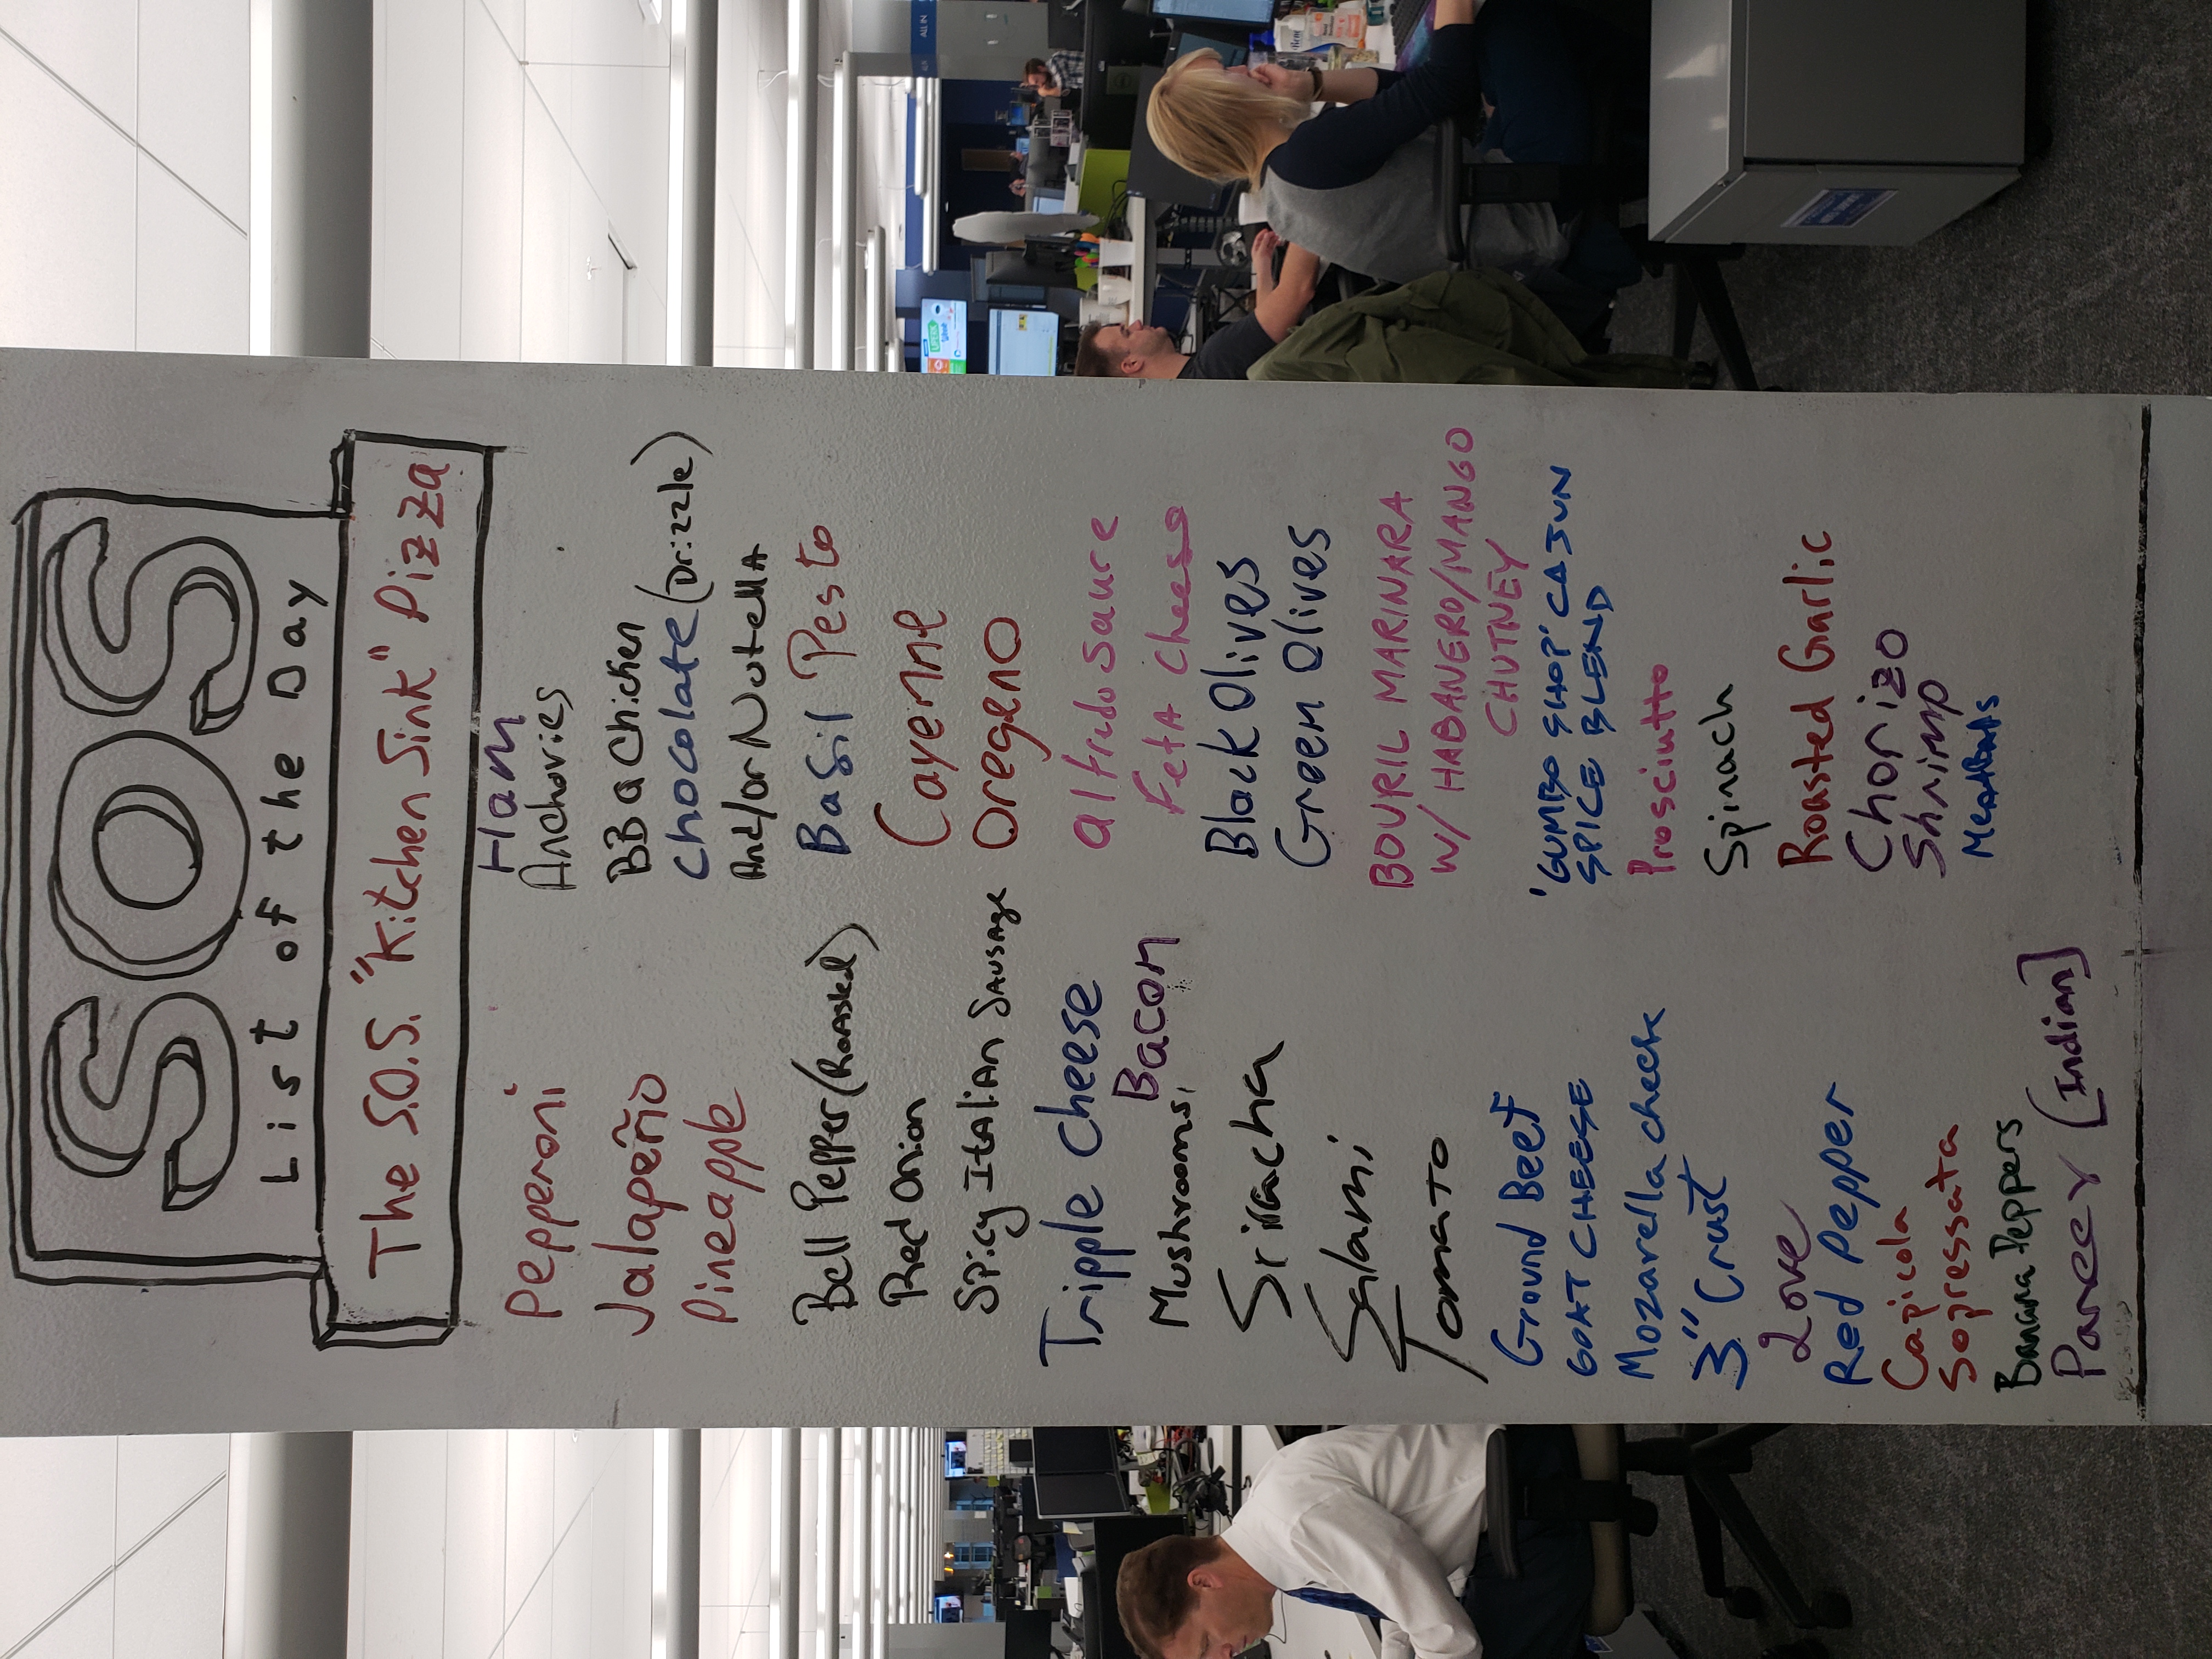 SOS
List of the Day
The S.O.S. "Kitchen Sink" Pizza
Pepperoni
Jalapeño
Pineapple
Bell Pepper (Roasted)
Red Onion
Spicy Italian Sausage
Tripple Cheese
Bacon
Mushrooms,
Sriracha
Salami
Tomato
Ground Beef
GOAT CHEESE
Mozarella cheese
3" Crust
Love
Red Pepper
Capicola
Sopressata
Banana Peppers
Paneer [Indian]
Ham
Anchovies
BBQ Chicken
Chocolate (Drizzle)
And/or Nutella
Basil Pesto
Cayenne
Oregeno
Alfredo sauce
Feta Cheese
Black Olives
Green Olives
BOURIL MARINARA
W/ HABANERO/MANGO
CHUTNEY
'GUMBO SHOP' CAJUN
SPICE BLEND
Prosciutto
Spinach
Roasted Garlic
Chorizo
Shrimp
ALL IN